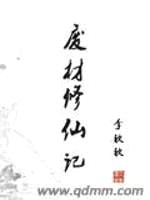 废材修仙记
李秋秋
www.qdmm.com